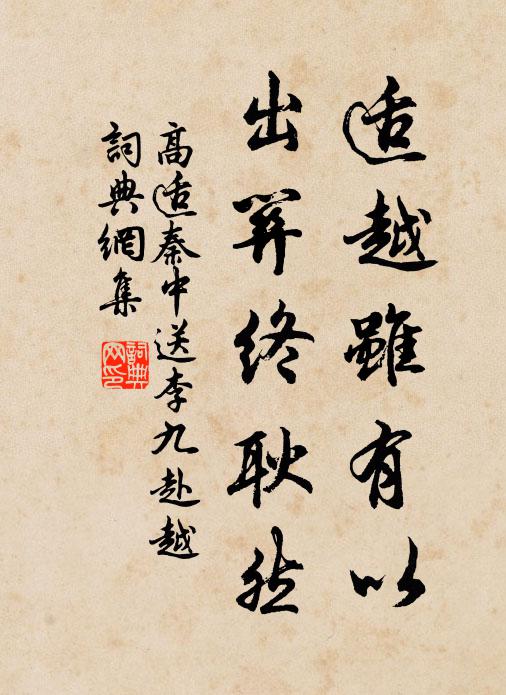 适越雖有以
出關終耿然
高适秦中送李九赴越
詞典網集
詞典网印